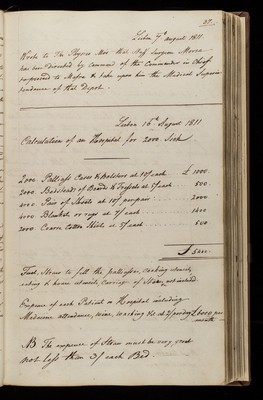 27
Lisbon 7th August 1811.
Wrote to The Physn. Mor that Staff Surgeon Morse
has been Directed by Command of the Commander in Chief
to proceed to Mafra & take upon him the Medical Superin-
tendence of that Depot.
Lisbon 16th August 1811
Calculation of an Hospital for 2000 Sick
2000 Palliass Cases & bolsters at 10/ each £ 1000
2000 Bedsteads of Boards & Tressels at 5/ each 500
4000 Pair of Sheets at 10/ per pair 2000
4000 Blankets or rugs at 7/ each 1400
2000 Coarse Cotton Shirts at 5/ each 500
£ 5400
Fuel, Straw to fill the palliasses, Cooking utensils,
& house utensils, Carriage of not included.
Expence of each Patient in Hospital including
Medicine attendance, wine, washing &c at 2/ per day £6000 per
month
NB The expence of Straw must be very great
not less than 3/ each Bed.